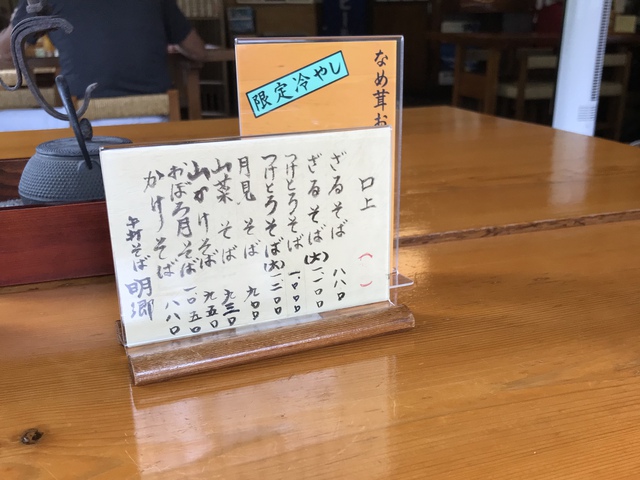 限定冷やし
なめ茸お
口上
ざるそば 八八〇
ざるそば(大) 一一〇〇
つけとろそば 一、〇〇〇
つけとろそば(大) 一二〇〇
月見そば 九〇〇
山菜そば 九三〇
山かけそば 九五〇
おぼろ月そば 一〇五〇
かけそば 八八〇
手打そば 明郷